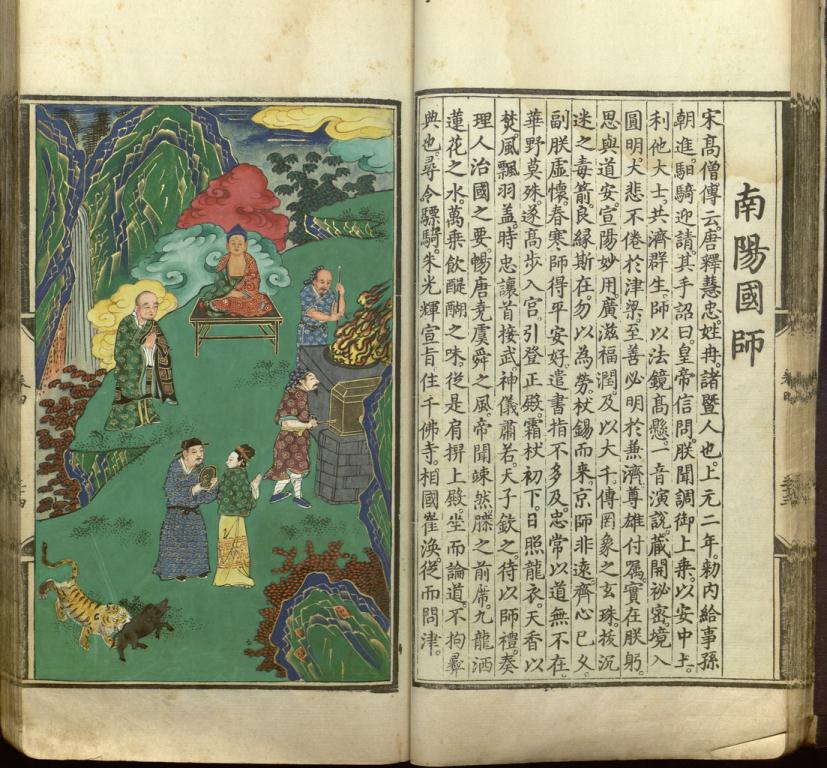 南陽國師
宋高僧傳云。唐釋慧忠。姓冉。諸暨人也。上元二年。勑內給事孫
朝進。馹騎迎請。其手詔曰。皇帝信問。朕聞調御上乘。以安中土。
利他大士。共濟群生。師以法鏡高懸。一音演說。藏開祕密。境入
圓明。大悲不倦於津梁。至善必明於兼濟。尊雄付囑。實在朕躬。
思與道安宣陽妙用。廣滋福潤。及以大千。傳罔象之玄珠。拔沉
迷之毒箭。良緣斯在。勿以為勞。杖錫而來。京師非遠。齊心已久。
副朕虛懷。春寒。師得平安好。遣書指不多及。忠常以道無不在。
華野莫殊。遂高步入宮。引登正殿。霜杖初下。日照龍衣。天香以
焚。風飄羽蓋。時忠讓首接武。神儀肅若。天子欽之。待以師禮。奏
理人治國之要。暢唐堯虞舜之風。帝聞竦然。膝之前席。九龍洒
蓮花之水。萬乘飲醍醐之味。從是肩上殿。坐而論道。不拘彝
典也。尋令驃騎。朱光輝宣旨。住千佛寺。相國崔渙。從而問津。